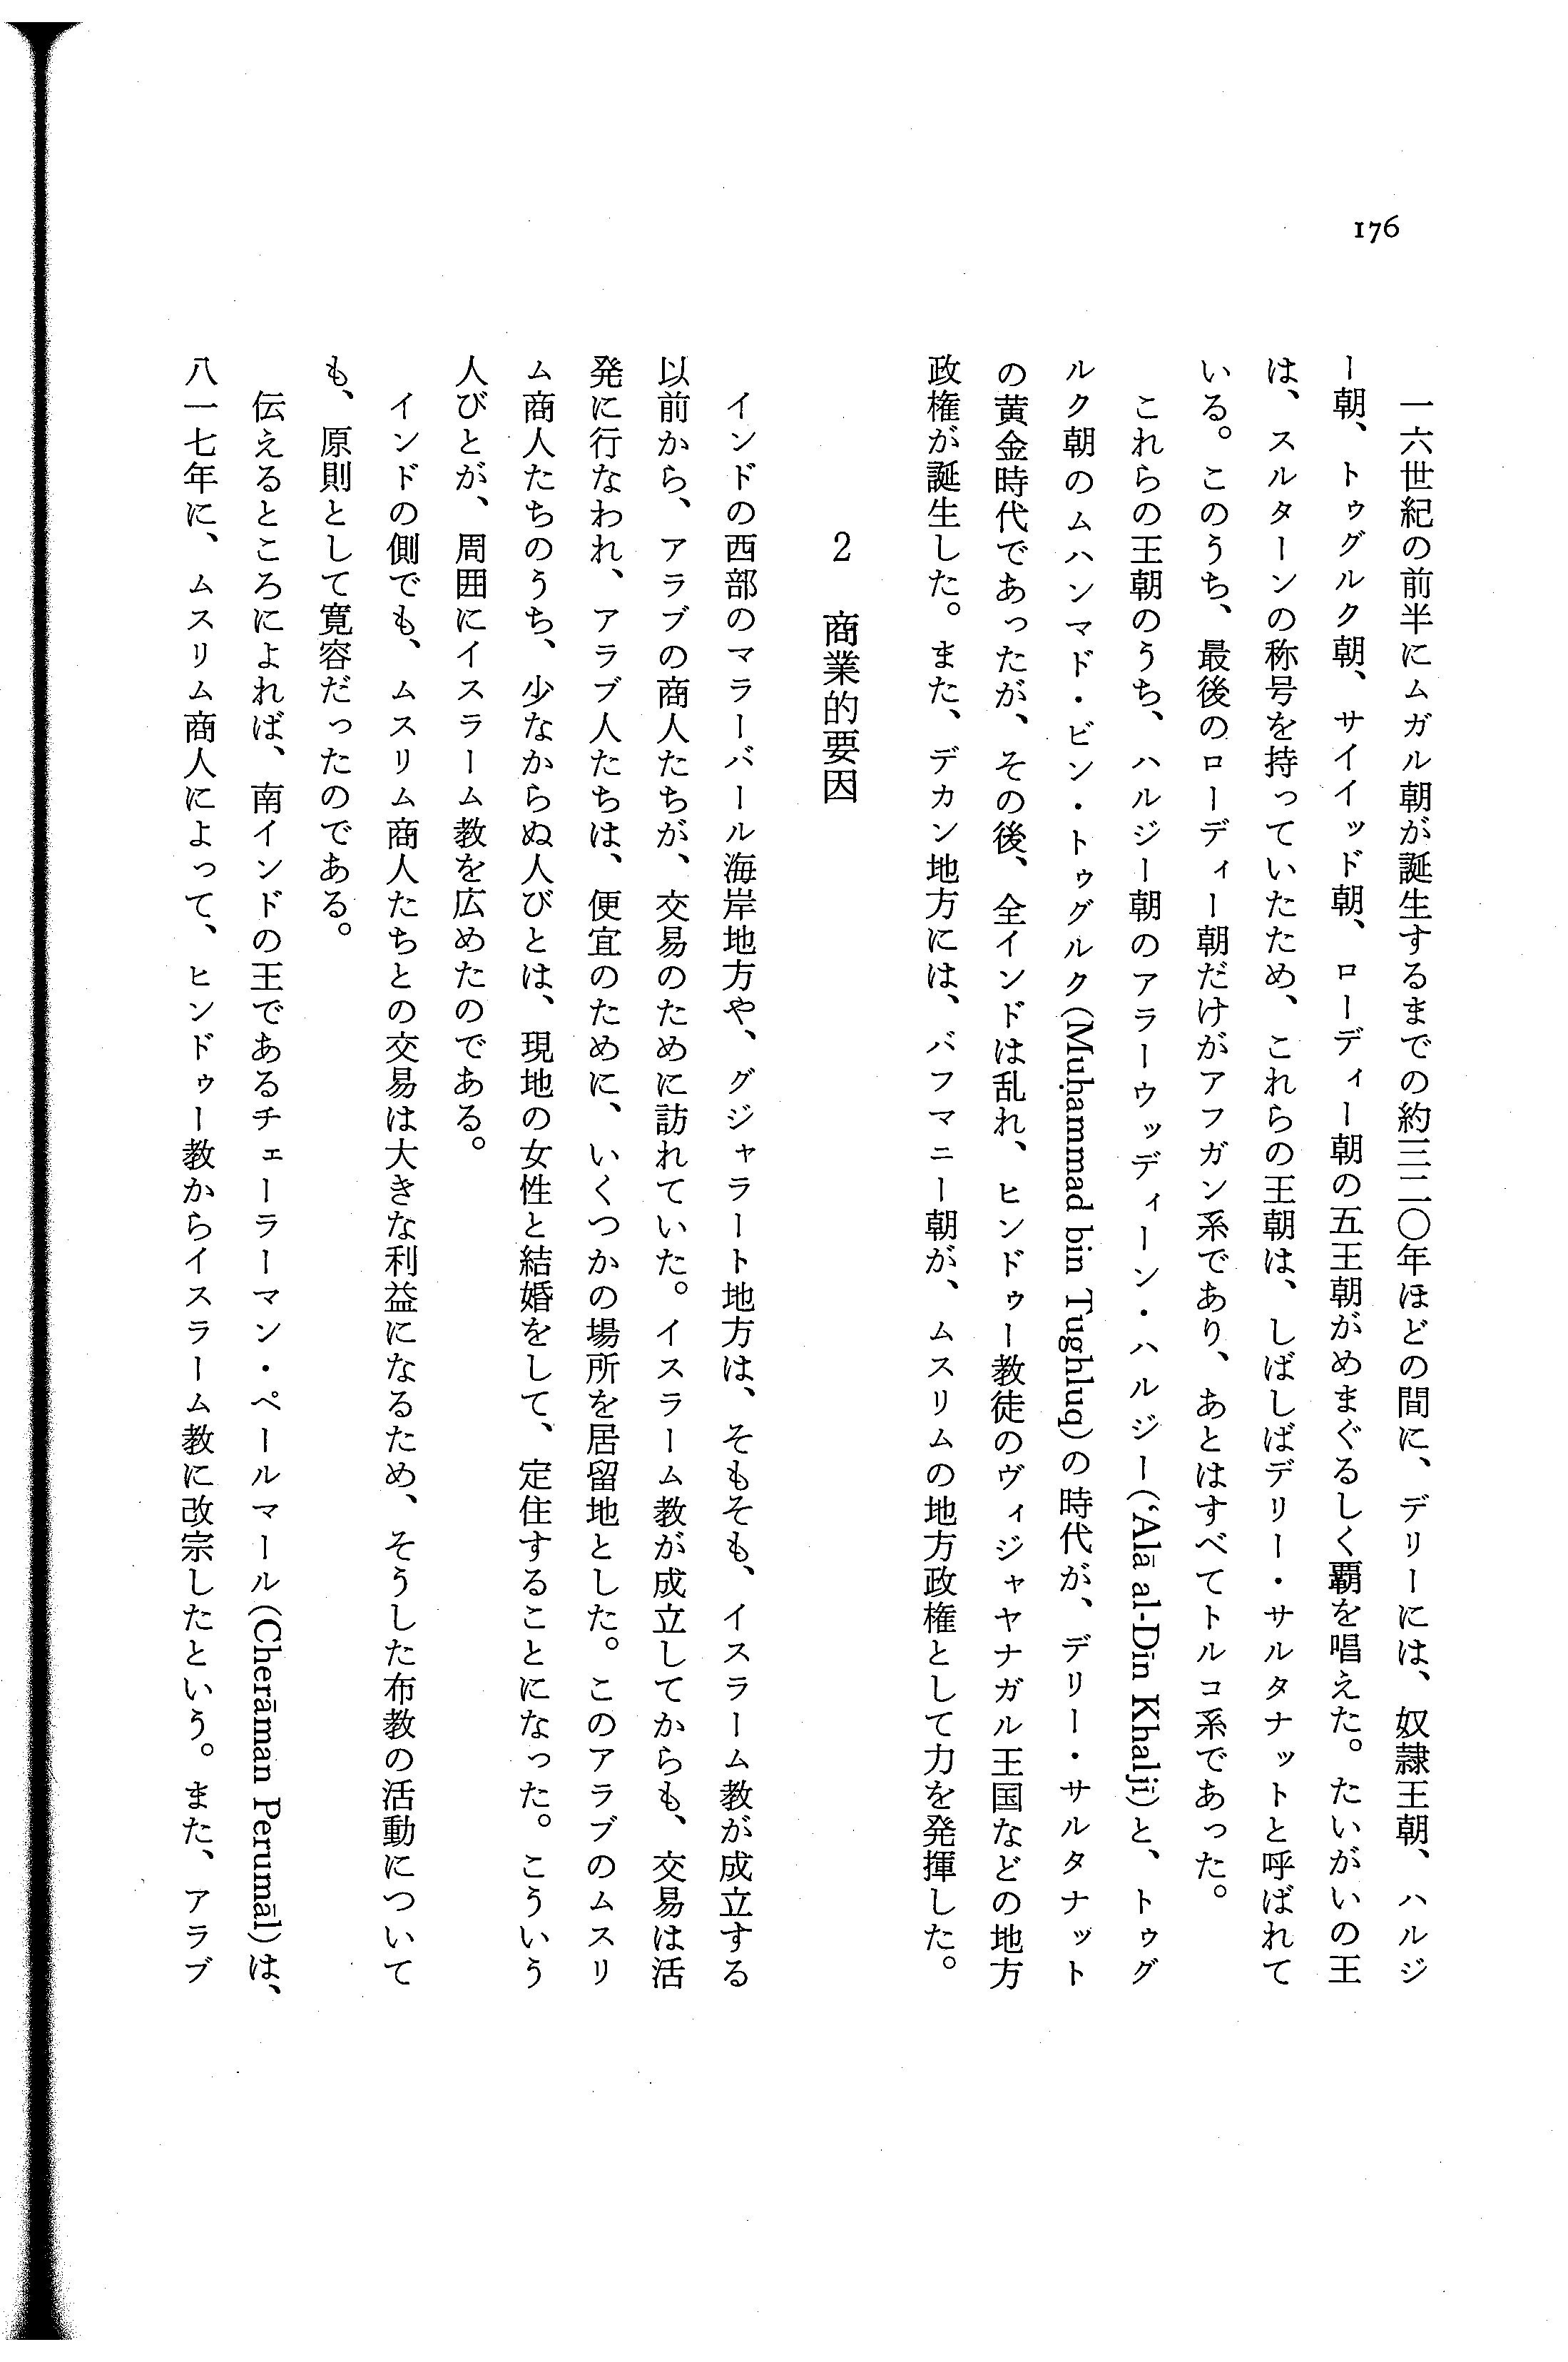 176
一六世紀の前半にムガル朝が誕生するまでの約三二〇年ほどの間に、デリーには、奴隷王朝、ハルジ
ー朝、トゥグルク朝、サイイッド朝、ローディー朝の五王朝がめまぐるしく覇を唱えた。たいがいの王
は、スルターンの称号を持っていたため、これらの王朝は、しばしばデリー・サルタナットと呼ばれて
いる。このうち、最後のローディー朝だけがアフガン系であり、あとはすべてトルコ系であった。
これらの王朝のうち、ハルジー朝のアラーウッディーン・ハルジー(‘Alā al-Dīn Khaljī)と、トゥグ
ルク朝のムハンマド・ビン・トゥグルク(Muḥammad bin Tughluq)の時代が、デリー・サルタナット
の黄金時代であったが、その後、全インドは乱れ、ヒンドゥー教徒のヴィジャヤナガル王国などの地方
政権が誕生した。また、デカン地方には、バフマニー朝が、ムスリムの地方政権として力を発揮した。
2 商業的要因
インドの西部のマラーバール海岸地方や、グジャラート地方は、そもそも、イスラーム教が成立する
以前から、アラブの商人たちが、交易のために訪れていた。イスラーム教が成立してからも、交易は活
発に行なわれ、アラブ人たちは、便宜のために、いくつかの場所を居留地とした。このアラブのムスリ
ム商人たちのうち、少なからぬ人びとは、現地の女性と結婚をして、定住することになった。こういう
人びとが、周囲にイスラーム教を広めたのである。
インドの側でも、ムスリム商人たちとの交易は大きな利益になるため、そうした布教の活動について
も、原則として寛容だったのである。
伝えるところによれば、南インドの王であるチェーラーマン・ペールマール(Cherāman Perumāl)は、
八一七年に、ムスリム商人によって、ヒンドゥー教からイスラーム教に改宗したという。また、アラブ